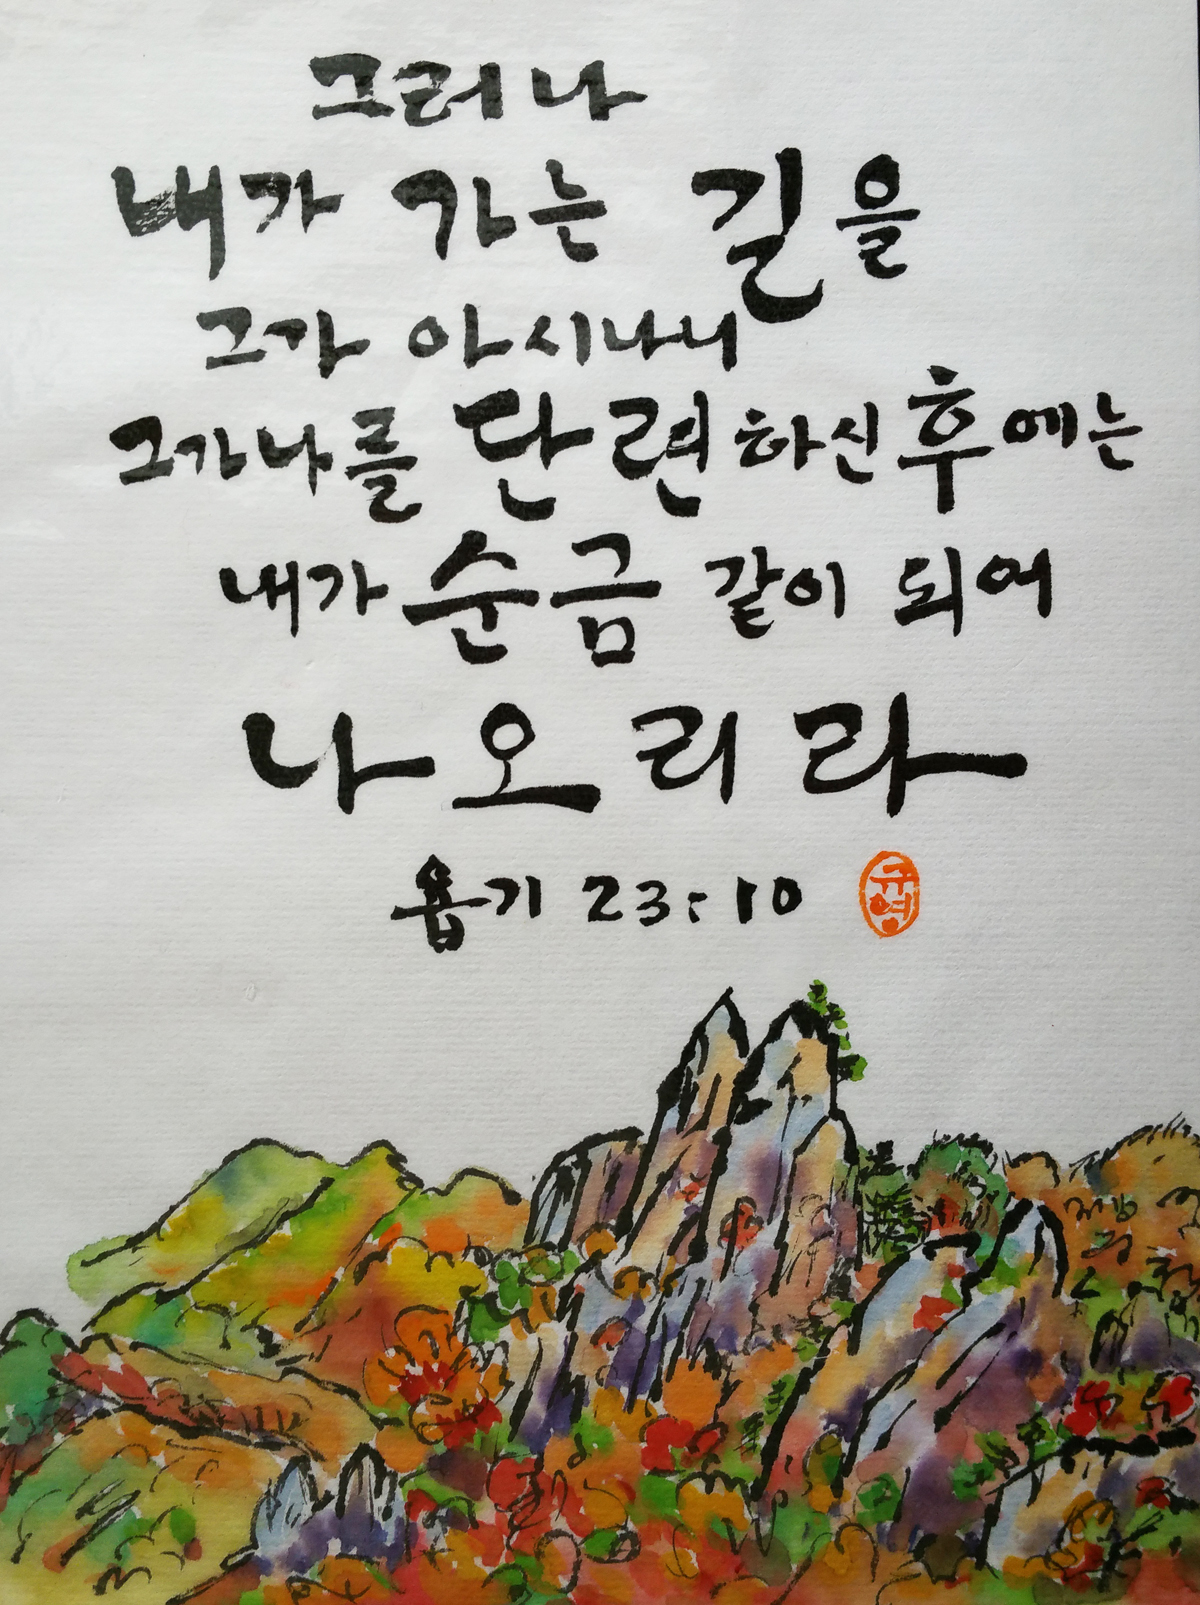 그러나
내가 가는 길을
그가 아시나니
그가 나를 단련하신 후에는
내가 순금 같이 되어
나오리라
욥기 23:10
규영